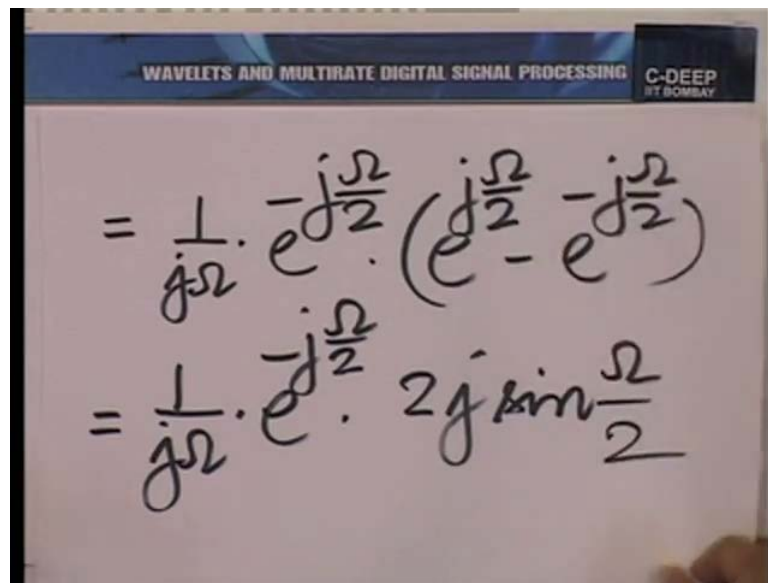 WAVELETS AND MULTIRATE DIGITAL SIGNAL PROCESSING
C-DEEP
IIT BOMBAY
= 1/jΩ · e^(-jΩ/2) · (e^(jΩ/2) - e^(-jΩ/2))
= 1/jΩ · e^(-jΩ/2) · 2j sin Ω/2